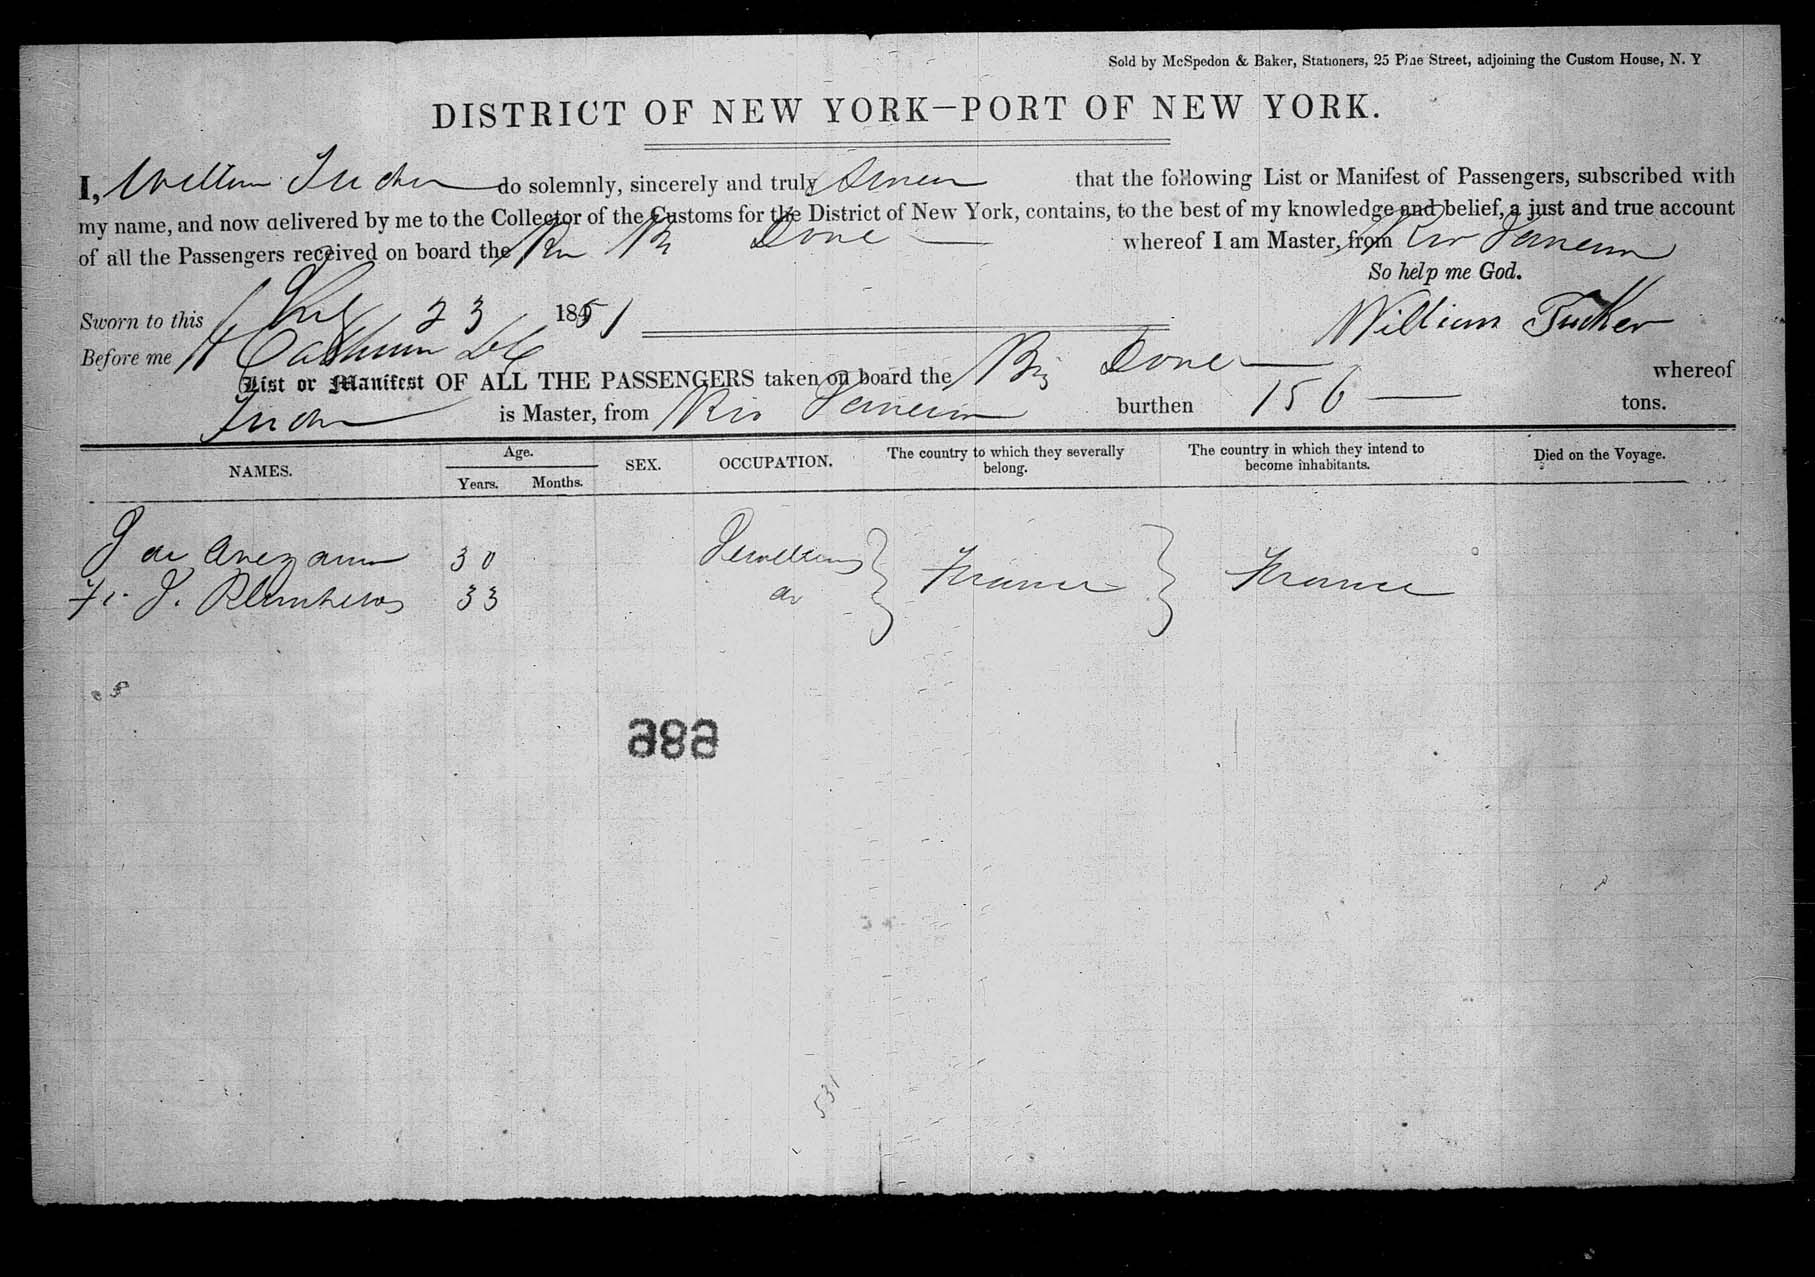 Sold by McSpedon & Baker, Stationers, 25 Pine Street, adjoining the Custom House, N. Y
DISTRICT OF NEW YORK—PORT OF NEW YORK.
I, William Tucker do solemnly, sincerely and truly Swear that the following List or Manifest of Passengers, subscribed with
my name, and now delivered by me to the Collector of the Customs for the District of New York, contains, to the best of my knowledge and belief, a just and true account
of all the Passengers received on board the Br Br Dove whereof I am Master, from Rio Janeiro
So help me God.
Sworn to this 23 1851
William Tucker
Before me Calhoun
List or Manifest OF ALL THE PASSENGERS taken on board the Br Dove whereof
Tucker is Master, from Rio Janeiro burthen 156 tons.
NAMES. Age. Years. Months. SEX. OCCUPATION. The country to which they severally belong. The country in which they intend to become inhabitants. Died on the Voyage.
J 30 France France
J. 33 do
989
531